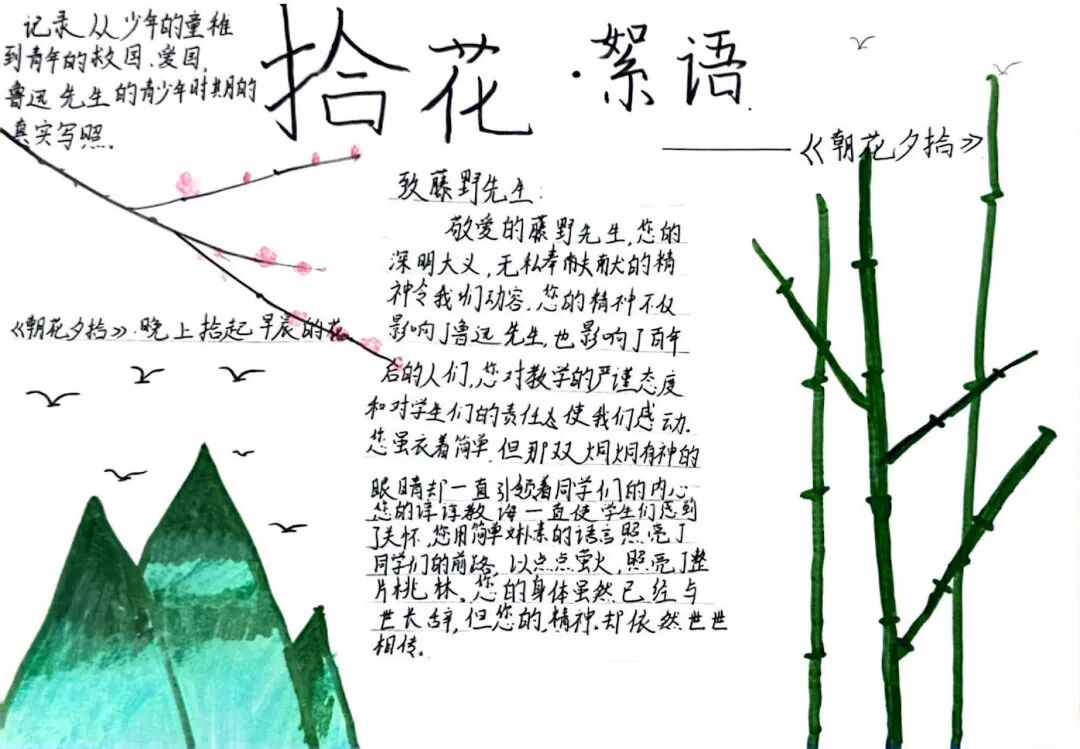 记录从少年的童稚
到青年的救国、爱国,
鲁迅先生的青少年时期的
真实写照.
拾花·絮语
——《朝花夕拾》
致藤野先生:
敬爱的藤野先生,您的
深明大义,无私奉献献的精
神令我们动容.您的精神不仅
影响了鲁迅先生,也影响了百年
后的人们,您对教学的严谨态度
和对学生们的责任心使我们感动.
您虽衣着简单,但那双炯炯有神的
眼睛却一直引领着同学们的内心
您的谆谆教诲一直使学生们感到
了关怀,您用简单朴素的语言照亮了
同学们的前路,以点点萤火,照亮了整
片桃林。您的身体虽然已经与
世长辞,但您的.精神.却依然世世
相传。
《朝花夕拾》.晚上拾起早晨的花